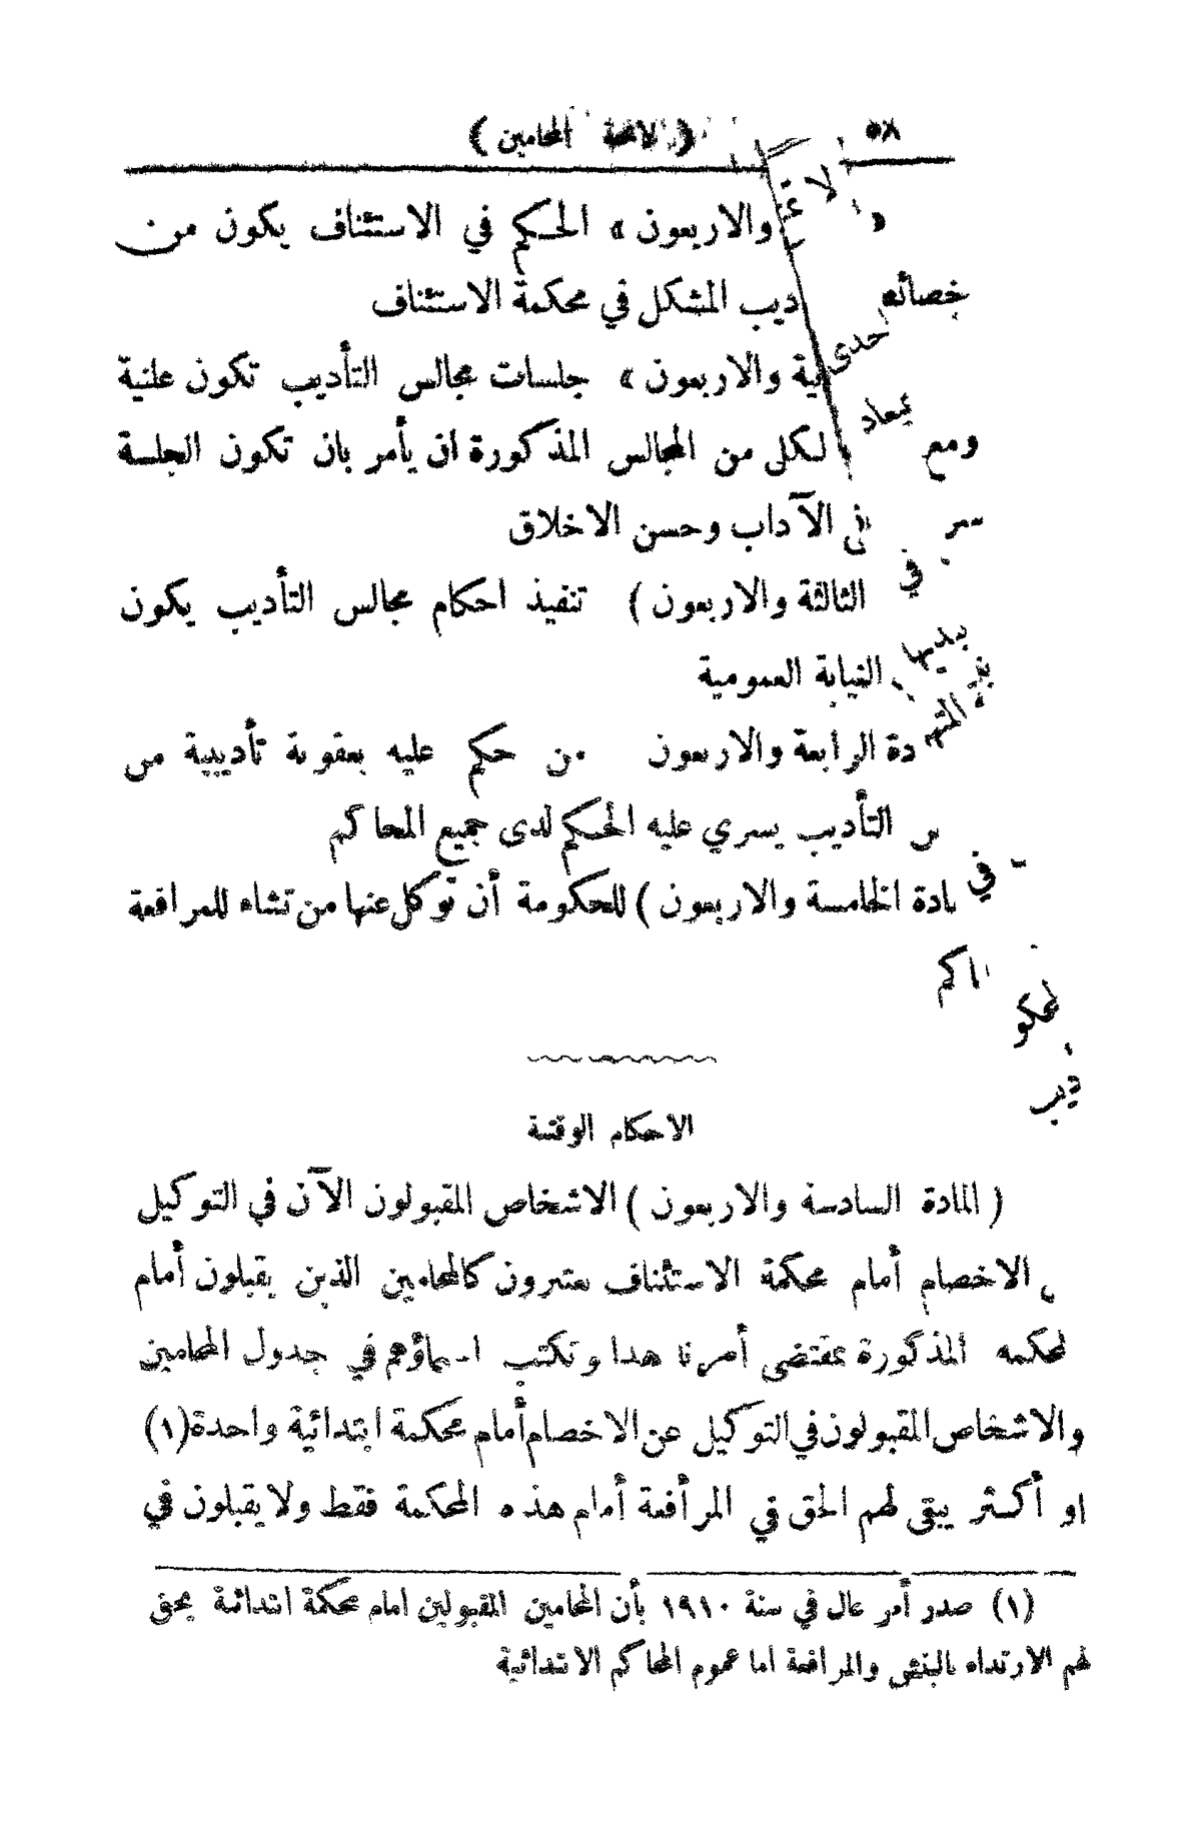 ٥٨ ( لائحة المحامين )
والاربعون » الحكم في الاستئناف يكون من
خصائص ديب المشكل في محكمة الاستئناف
ية والاربعون » جلسات مجالس التأديب تكون علنية
ومع لكل من المجالس المذكورة ان يأمر بان تكون الجلسة
في الآداب وحسن الاخلاق
الثالثة والاربعون ) تنفيذ احكام مجالس التأديب يكون
النيابة العمومية
دة الرابعة والاربعون من حكم عليه بعقوبة تأديبية من
س التأديب يسري عليه الحكم لدى جميع المحاكم
ادة الخامسة والاربعون ) للحكومة أن توكل عنها من تشاء للمرافعة
اكم
الاحكام الوقتية
( المادة السادسة والاربعون ) الاشخاص المقبولون الآن في التوكيل
الاخصام أمام محكمة الاستئناف يعتبرون كالمحامين الذين يقبلون أمام
لمحكمه المذكورة بمقتضى أمرنا هذا وتكتب اسماؤهم في جدول المحامين
والاشخاص المقبولون في التوكيل عن الاخصام أمام محكمة ابتدائية واحدة (١)
او أكثر يبقى لهم الحق في المرافعة أمام هذه المحكمة فقط ولا يقبلون في
(١) صدر أمر عال في سنة ١٩١٠ بأن المحامين المقبولين امام محكمة ابتدائية يحق
لهم الارتداء بالبنش والمرافعة اما عموم المحاكم الابتدائية